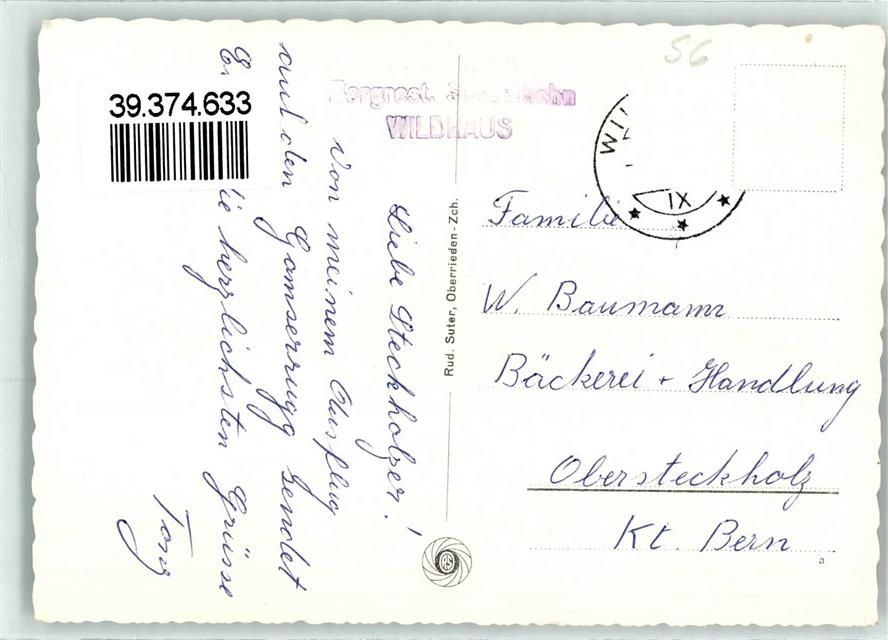 56
39.374.633
Bergrest. Sesselbahn
WILDHAUS
WIL
IX
Liebe Steckholzer!
Von meinem Ausflug
auf den Gamserrugg sendet
die herzlichsten Grüsse
Tony
Rud. Suter, Oberrieden - Zch.
RS
Familie
W. Baumann
Bäckerei + Handlung
Obersteckholz
Kt. Bern
a